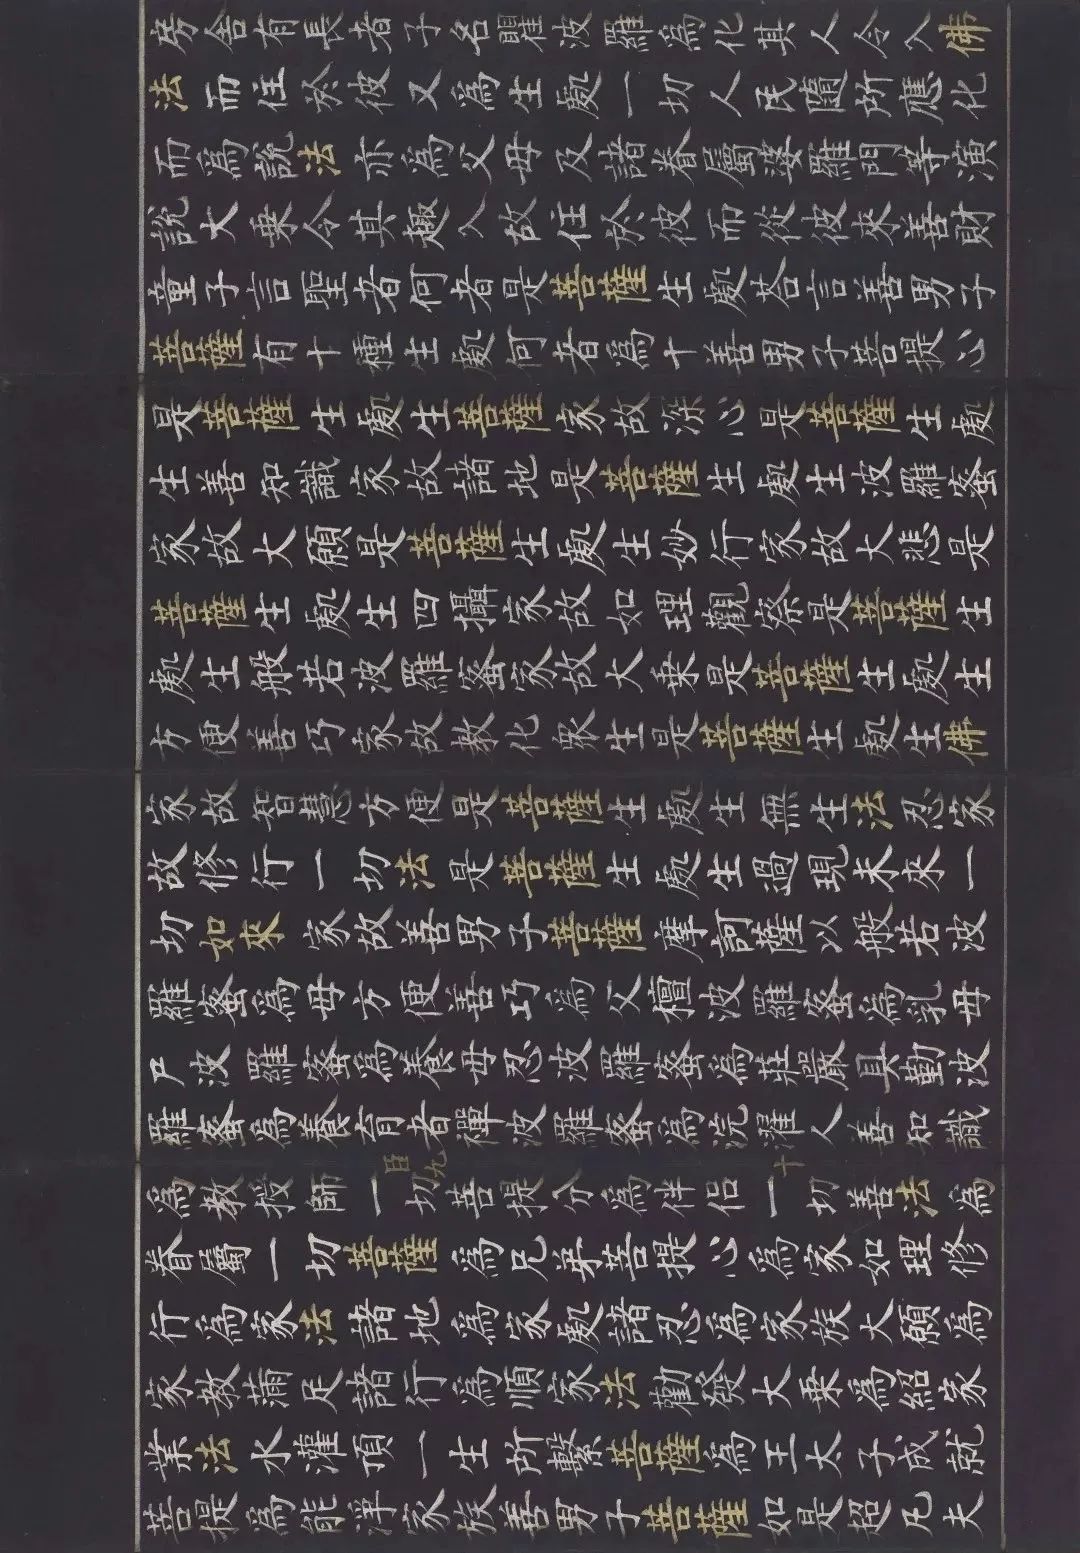 房舍有長者子名瞿波羅為化其人令入佛
法而住於彼又為生處一切人民隨所應化
而為說法亦為父母及諸眷屬婆羅門等演
說大乘令其趣入故住於彼而從彼來善財
童子言聖者何者是菩薩生處荅言善男子
菩薩有十種生處何者為十善男子菩提心
是菩薩生處生菩薩家故深心是菩薩生處
生善知識家故諸地是菩薩生處生波羅蜜
家故大願是菩薩生處生妙行家故大悲是
菩薩生處生四攝家故如理觀察是菩薩生
處生般若波羅蜜家故大乘是菩薩生處生
方便善巧家故教化眾生是菩薩生處生佛
家故智慧方便是菩薩生處生無生法忍家
故修行一切法是菩薩生處生過現未來一
切如來家故善男子菩薩摩訶薩以般若波
羅蜜為母方便善巧為父檀波羅蜜為乳母
尸波羅蜜為養母忍波羅蜜為莊嚴具勤波
羅蜜為養育者禪波羅蜜為浣濯人善知識
為教授師一切菩提分為伴侶一切善法為
眷屬一切菩薩為兄弟菩提心為家如理修
行為家法諸地為家處諸忍為家族大願為
家教滿足諸行為順家法勸發大乘為紹家
業法水灌頂一生所繫菩薩為王太子成就
菩提為能淨家族善男子菩薩如是超凡夫